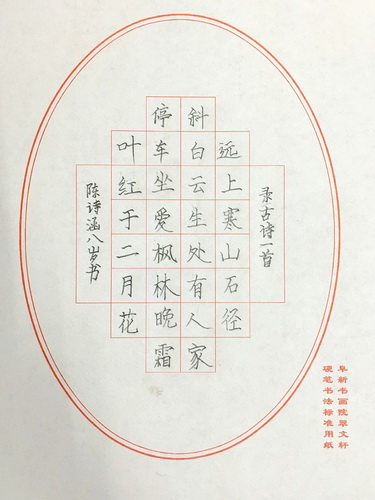 录古诗一首
远上寒山石径
斜白云生处有人家
停车坐愛枫林晚霜
叶红于二月花
陈诗涵八岁书
阜新书画院翠文轩
硬笔书法标准用纸